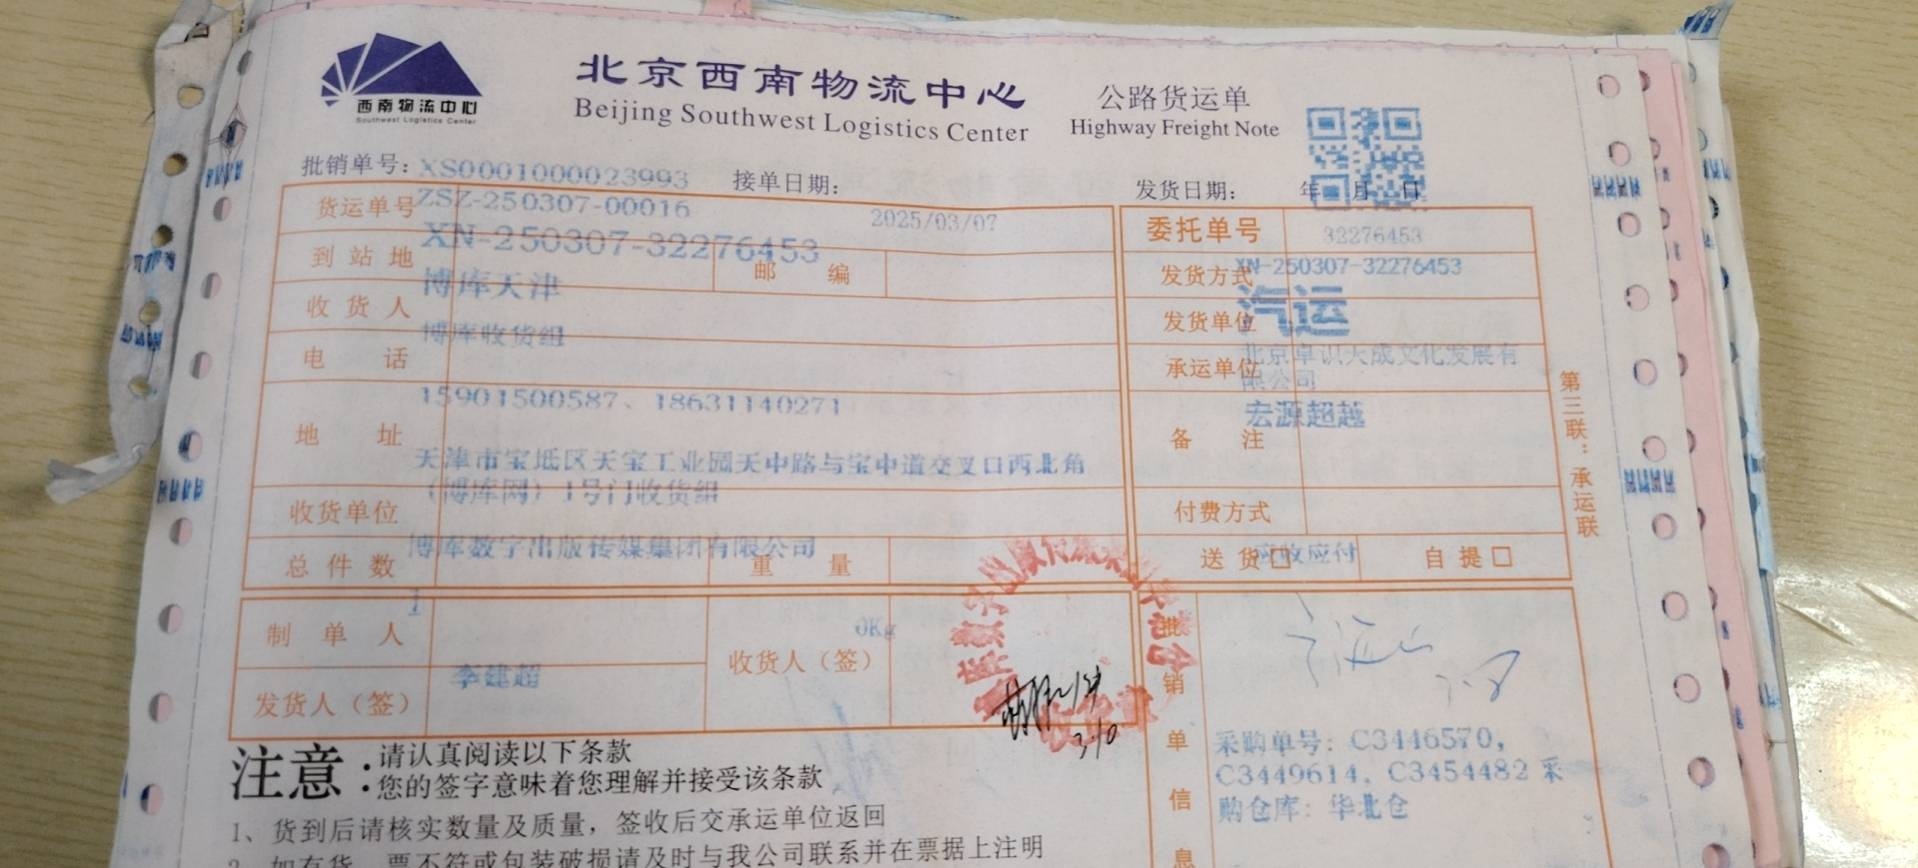 西南物流中心
Southwest Logistics Center
北京西南物流中心
Beijing Southwest Logistics Center
公路货运单
Highway Freight Note
批销单号：XS0001000023993 接单日期： 发货日期： 年 月 日
货运单号 ZSZ-250307-00016 2025/03/07
XN-250307-32276453
到站地 博库天津 邮编
收货人 博库收货组
电话 15901500587、18631140271
地址 天津市宝坻区天宝工业园天中路与宝中道交叉口西北角
（博库网）1号门收货组
收货单位 博库数字出版传媒集团有限公司
总件数 1 重量 0Kg
委托单号 32276453
XN-250307-32276453
发货方式 汽运
发货单位 北京卓识大成文化发展有
限公司
承运单位 宏源超越
备注
付费方式 应收应付
送货 自提
第三联：承运联
制单人 李建超
收货人（签）
3.10
发货人（签）
批销单信息
采购单号：C3446570，
C3449614、C3454482 采
购仓库：华北仓
注意：
请认真阅读以下条款
您的签字意味着您理解并接受该条款
1、货到后请核实数量及质量，签收后交承运单位返回
2、如有货、票不符或包装破损请及时与我公司联系并在票据上注明